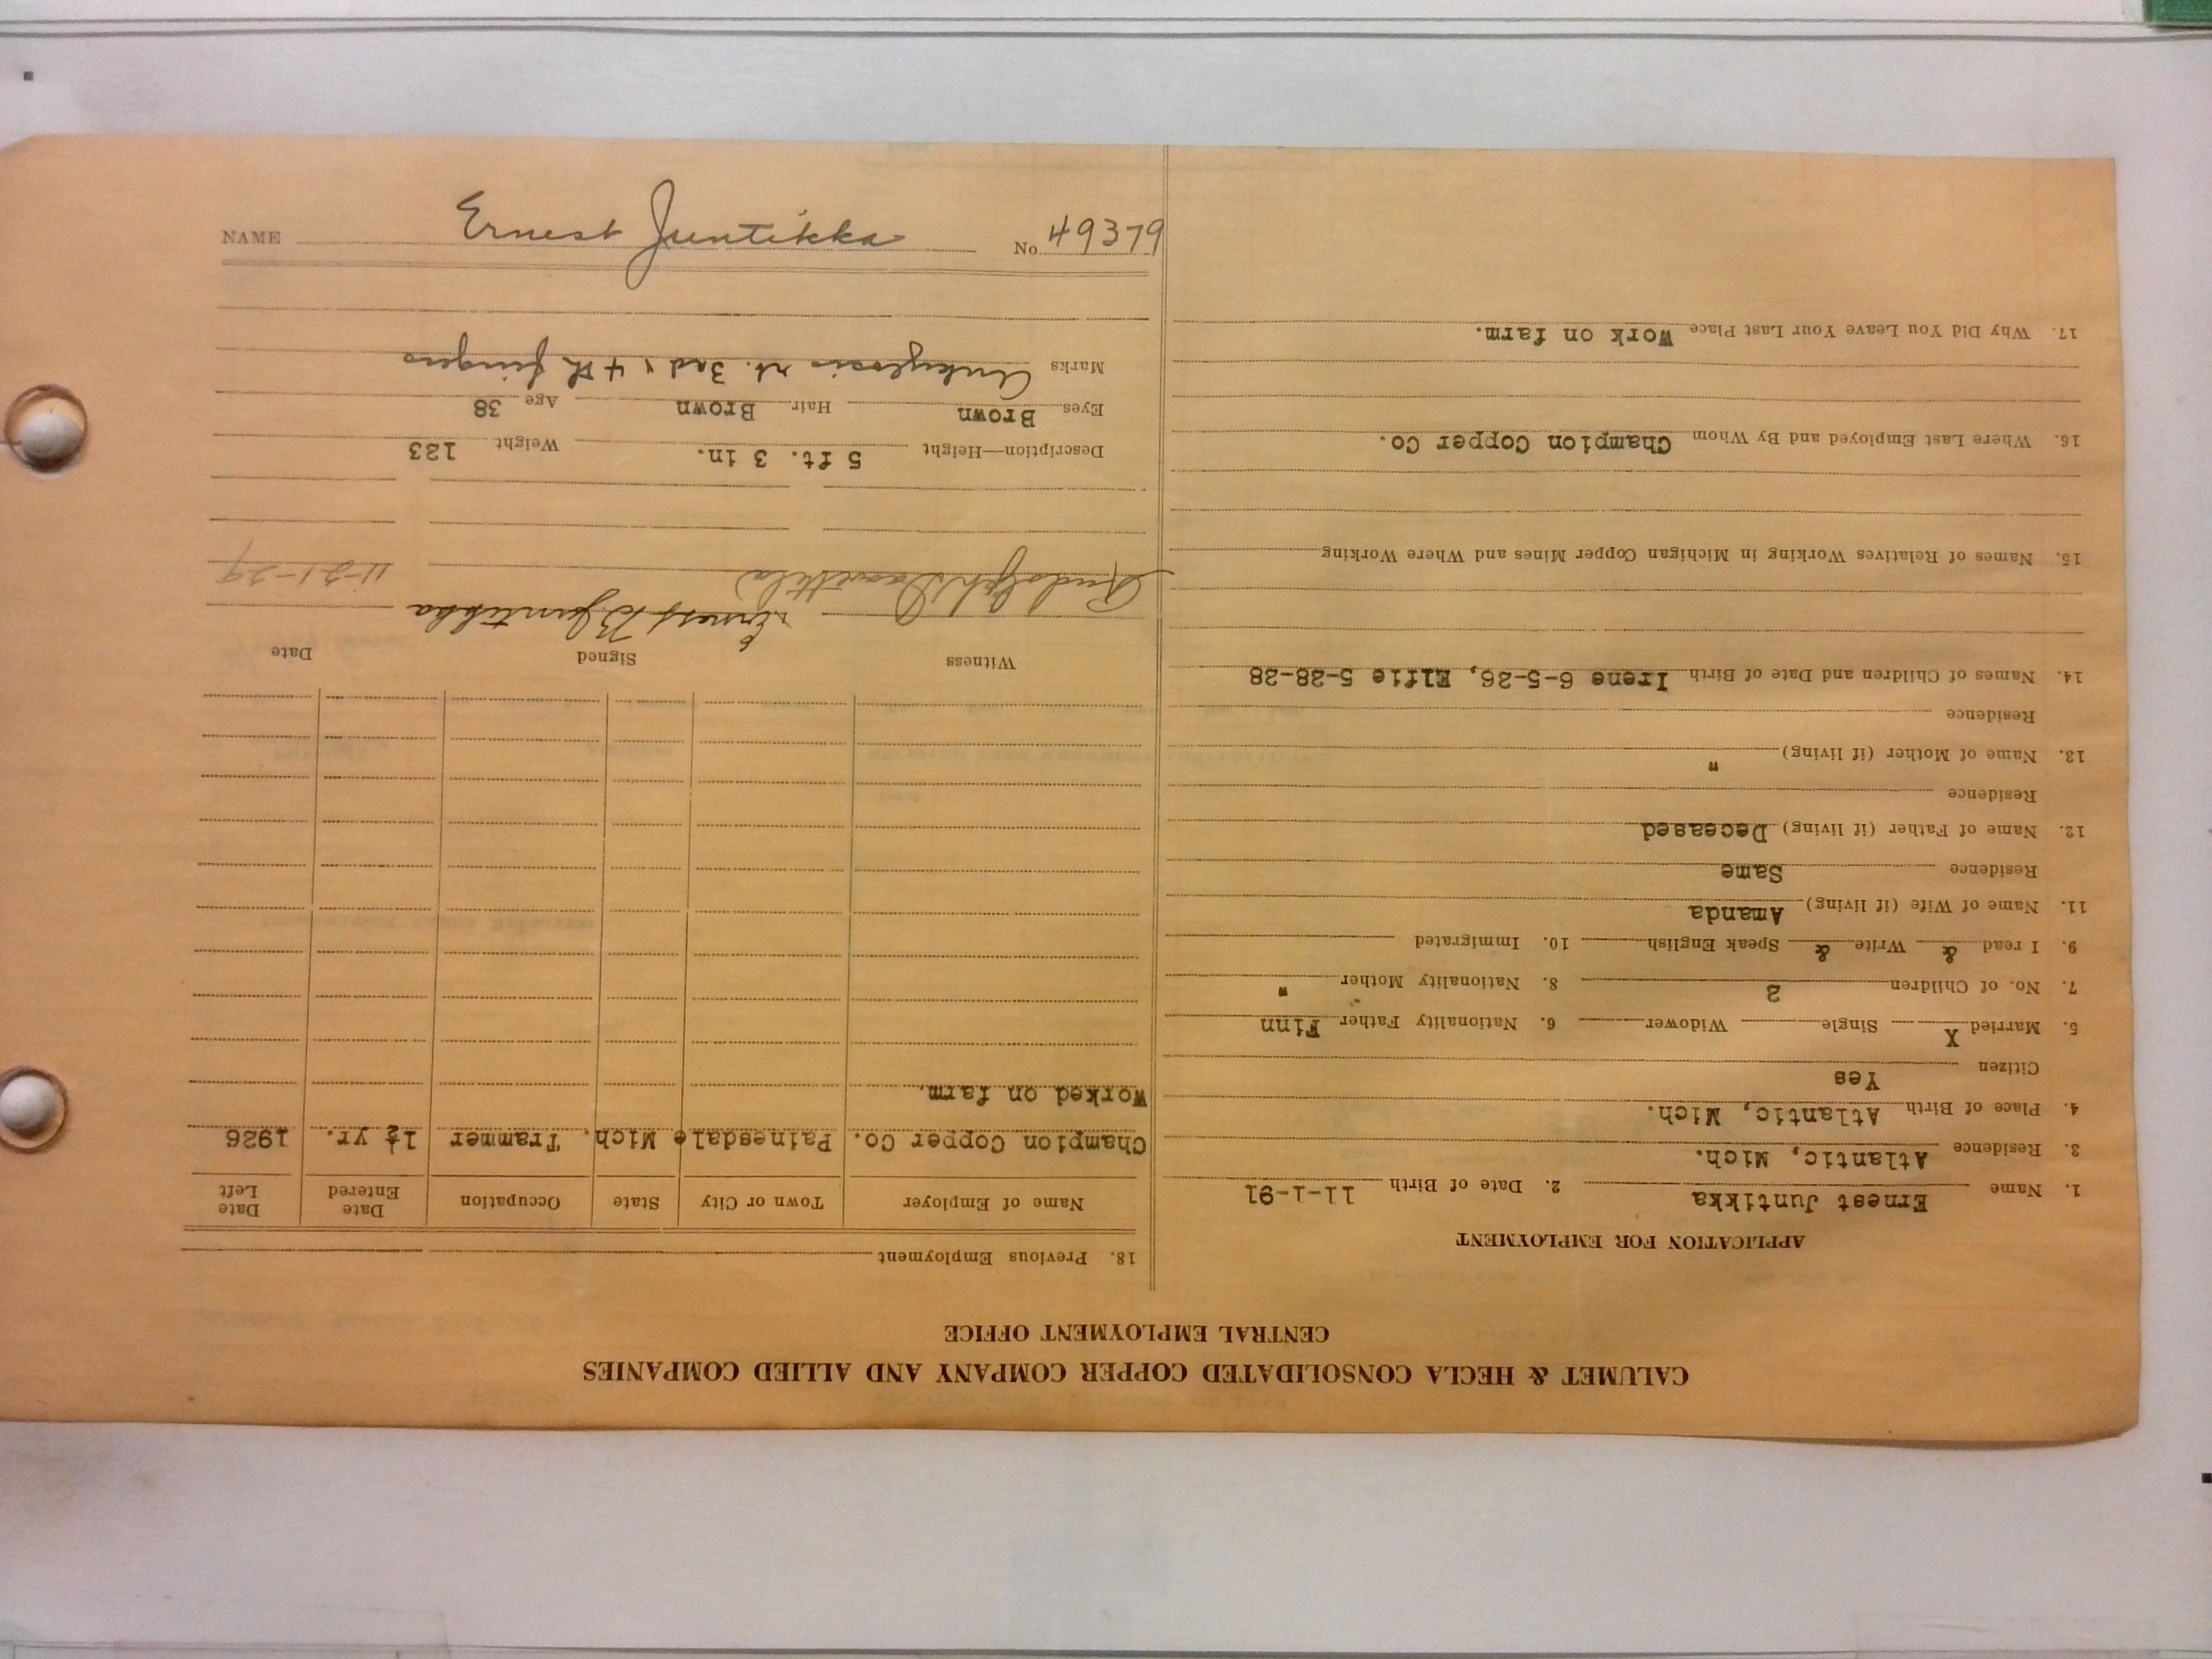 NAME Ernest Juntikka No. 49379
CALUMET & HECLA CONSOLIDATED COPPER COMPANY AND ALLIED COMPANIES
CENTRAL EMPLOYMENT OFFICE
APPLICATION FOR EMPLOYMENT
1. Name Ernest Juntikka 2. Date of Birth 11-1-91
3. Residence Atlantic, Mich.
4. Place of Birth Atlantic, Mich.
Citizen Yes
5. Married X Single Widower 6. Nationality Father Finn
7. No. of Children 2 8. Nationality Mother "
9. I read & Write & Speak English 10. Immigrated
11. Name of Wife (if living) Amanda
Residence Same
12. Name of Father (if living) Deceased
Residence
13. Name of Mother (if living) "
Residence
14. Names of Children and Date of Birth Irene 6-5-26, Elfie 5-28-28
15. Names of Relatives Working in Michigan Copper Mines and Where Working
16. Where Last Employed and By Whom Champion Copper Co.
17. Why Did You Leave Your Last Place Work on farm.
18. Previous Employment
Name of Employer Town or City State Occupation Date Entered Date Left
Champion Copper Co. Painesdale Mich. Trammer 1½ yr. 1926
Worked on farm.
Witness Signed Date
Rudolph Ernest B Juntikka 11-21-29
Description—Height 5 ft. 3 in. Weight 123
Eyes Brown Hair Brown Age 38
Marks Ankylosis rt. 3rd & 4th fingers